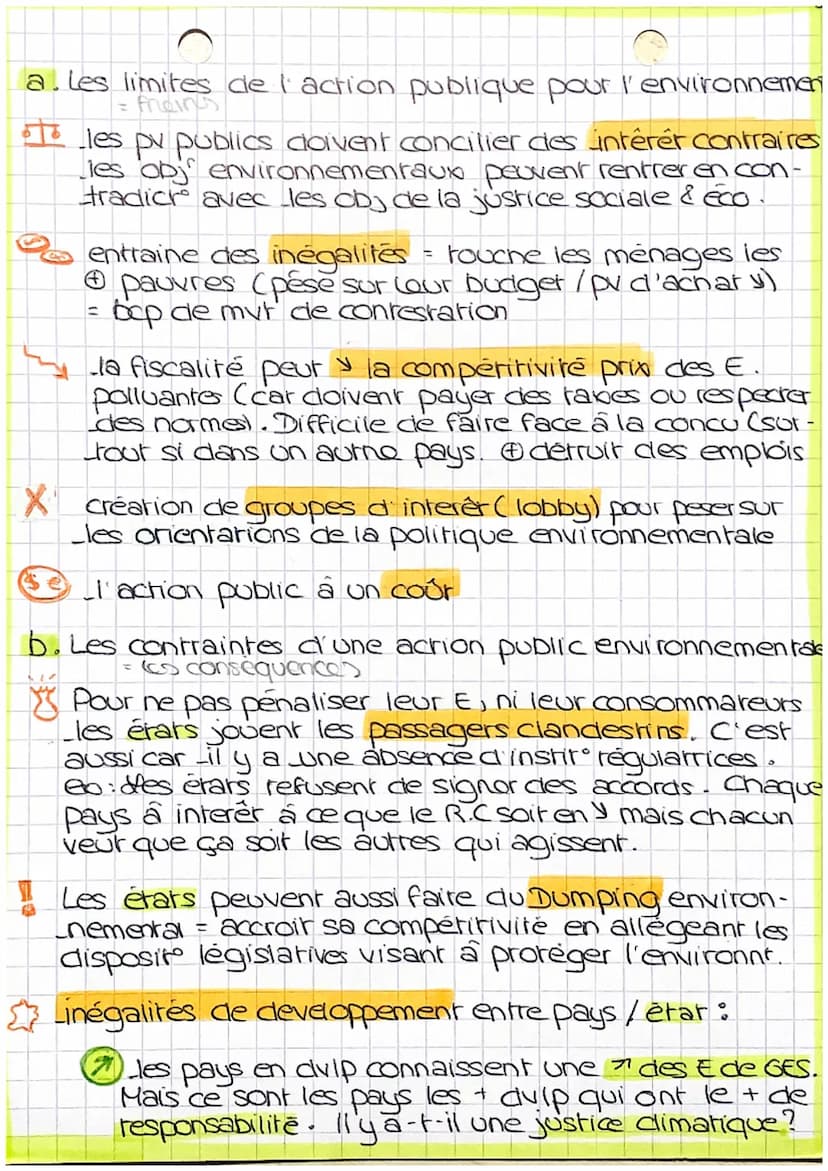 a. Les limites de l'action publique pour l'environnemen
= freins
les pv publics doivent concilier des intérêt contraires
les objs environnementaux peuvent rentrer en con-
tradict° avec les obj de la justice sociale & éco.
entraine des inégalités = touche les ménages les
⊕ pauvres (pèse sur leur budget / pv d'achat ↘)
= bcp de mvt de contestation
la fiscalité peut ↘ la compétitivité prix des E.
polluantes (car doivent payer des taxes ou respecter
des normes). Difficile de faire face à la concu (sur-
tout si dans un autre pays. ⊕ détruit des emplois
X création de groupes d'interêt (lobby) pour peser sur
les orientations de la politique environnementale
$ € l'action public à un coût
b. Les contraintes d'une action public environnementale
= les conséquences
Pour ne pas pénaliser leur E, ni leur consommateurs
les états jouent les passagers clandestins. C'est
aussi car il y a une absence d'instit° régulatrices.
ex: des états refusent de signer des accords. Chaque
pays à interêt à ce que le R.C soit en ↘ mais chacun
veut que ça soit les autres qui agissent.
! Les états peuvent aussi faire du Dumping environ-
nemental = accroir sa compétitivité en allégeant les
disposit° législatives visant à protéger l'environnt.
inégalités de developpement entre pays / état :
↗ les pays en dvlp connaissent une ↗ des E de GES.
Mais ce sont les pays les + dvlp qui ont le + de
responsabilité. Il y a-t-il une justice climatique?